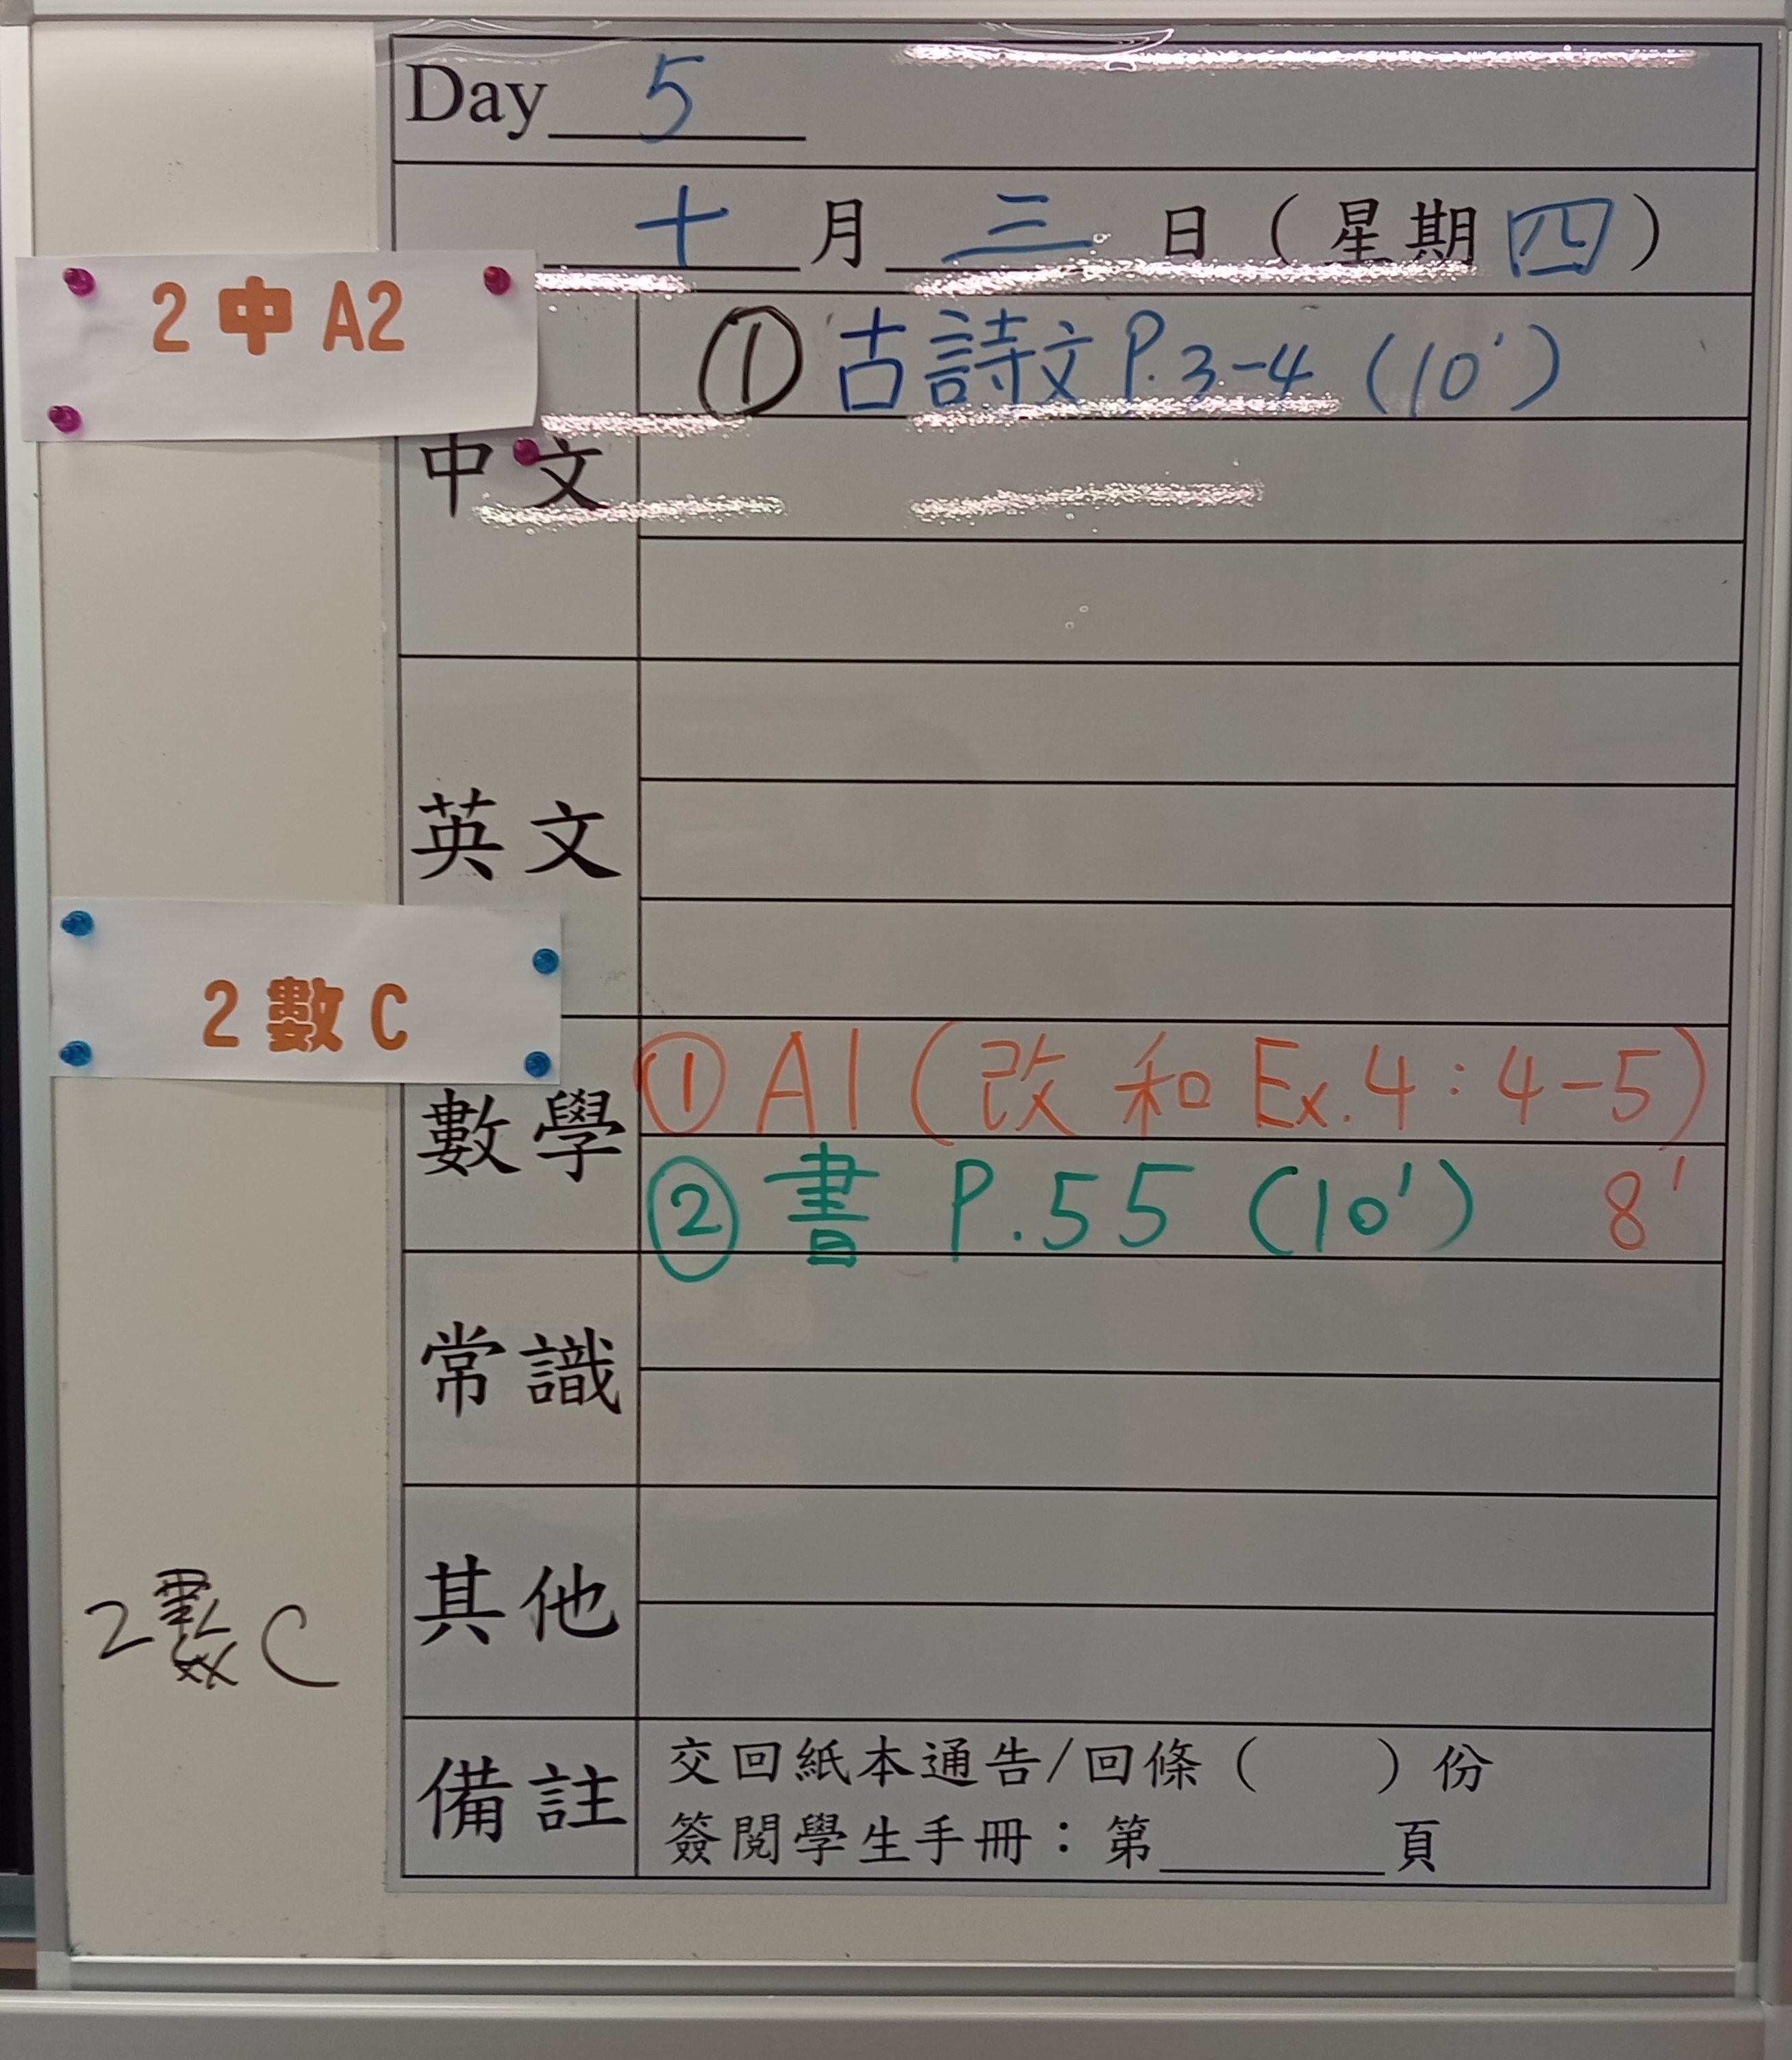 Day 5
十 月 三 日 ( 星期 四 )
2 中 A2
① 古詩文 P.3-4 (10')
中文
英文
2 數 C
數學
① A1 ( 改 和 Ex.4 : 4-5 )
8'
② 書 P.55 (10')
常識
其他
2數C
備註
交回紙本通告/回條 ( ) 份
簽閱學生手冊：第 頁